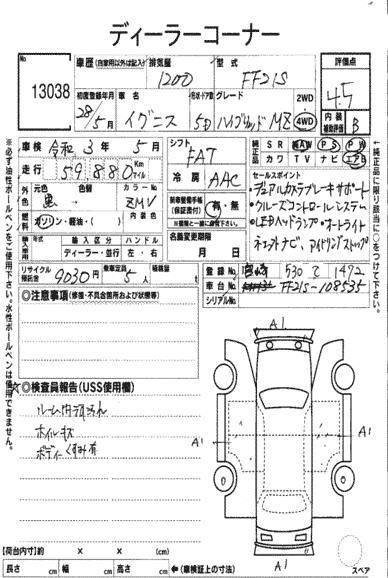 ディーラーコーナー
No 13038
車歴 (自家用以外は記入) 排気量 1200 型式 FF21S 評価点 4.5
初度登録年月 28/5月 車名 イグニス 形状・ドア数 5D グレード ハイブリッドMZ 2WD・4WD 内装補助評価 B
車検 令和3年5月 シフト FAT 純正品 SR AW PS PW
カワ TV ナビ エアB
走行 59,880 Km マイル 冷房 AAC
外色 元色 黒 色替 カラーNo. ZMV 内装色
セールスポイント
・デュアルカメラブレーキサポート
・クルーズコントロールシステム
・LEDヘッドランプ・オートライト
ネェットナビ、アイドリングストップ
燃料 ガソリン・軽油・( )
新車整備手帳(保証書付) 有・無
※一週間以内に後送
輸入車 輸入区分 ハンドル
ディーラー・並行 左・右
名義変更期限 月 日
リサイクル預託金 9030円 乗車定員 5人 積載量
登録No. 宮崎 530 て 1472
車台No. FF21S-108535
シリアルNo.
◎注意事項 (修復・不具合箇所および状態等)
☆◎検査員報告 (USS使用欄)
ルーム内頭汚れ
ホイルキズ
ボディーくすみ有
A1
A1
A1
A1
【荷台内寸】約 × × (cm)
長さ cm 幅 cm 高さ cm ←(車検証上の寸法)
スペア
※必ず油性ボールペンをご使用下さい。水性ボールペンは使用できません。
※純正品に限り該当に○をつけて下さい。